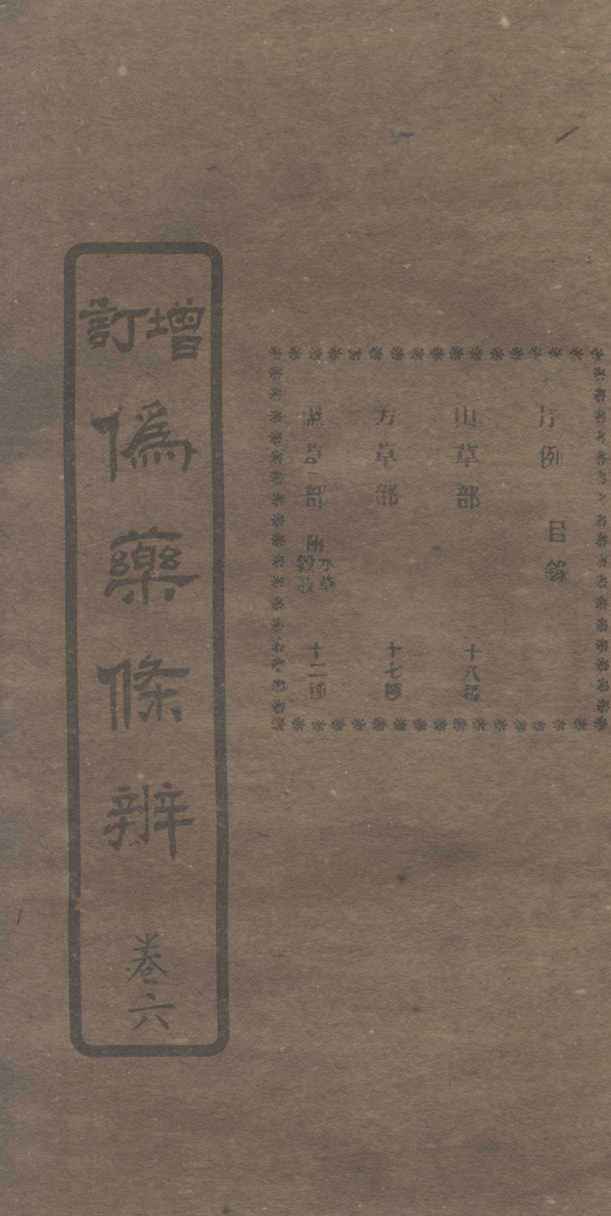 凡例 目錄
山草部 十八種
芳草部 十七種
草部 附水草 十二種
增訂偽藥條辨 卷六